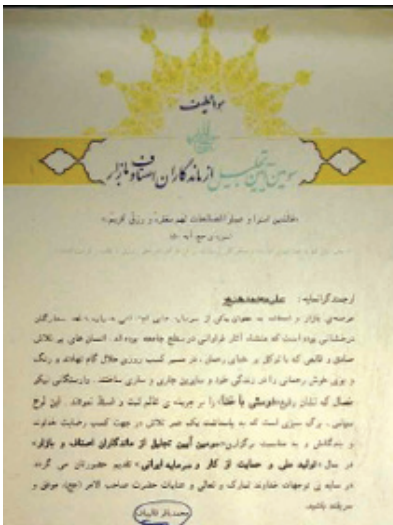 هواللطیف
سومین آیین تجلیل از ماندگاران اصناف و بازار
«فالذین امنوا و عملوا الصالحات لهم مغفرة و رزق کریم»
سوره ی حج آیه ۵۰
ارجمند گرانمایه : علی محمد هنرور
عرصه‌ی بازار و اصناف به عنوان یکی از سرمایه های اجتماعی همواره شاهد ستارگان
درخشانی بوده است که منشاء آثار فراوانی در سطح جامعه بوده اند. انسان های پر تلاش
صادق و قانعی که با توکل بر خدای رحمان، در مسیر کسب روزی حلال گام نهادند و رنگ
و بوی خوش رحمانی را در زندگی خود و سایرین جاری و ساری ساختند. وارستگانی نیکو
خصال که نشان رفیع «دوستی با خدا» را بر جریده ی عالم ثبت و ضبط نمودند. این لوح
سپاس، برگ سبزی است که به پاسداشت یک عمر تلاش در جهت کسب رضایت خداوند
و بندگانش و به مناسبت برگزاری «سومین آیین تجلیل از ماندگاران اصناف و بازار»
در سال «تولید ملی و حمایت از کار و سرمایه ایرانی» تقدیم حضورتان می گردد
در سایه ی توجهات خداوند تبارک و تعالی و عنایات حضرت صاحب الامر (عج)، موفق و
سربلند باشید.
محمد باقر قالیباف